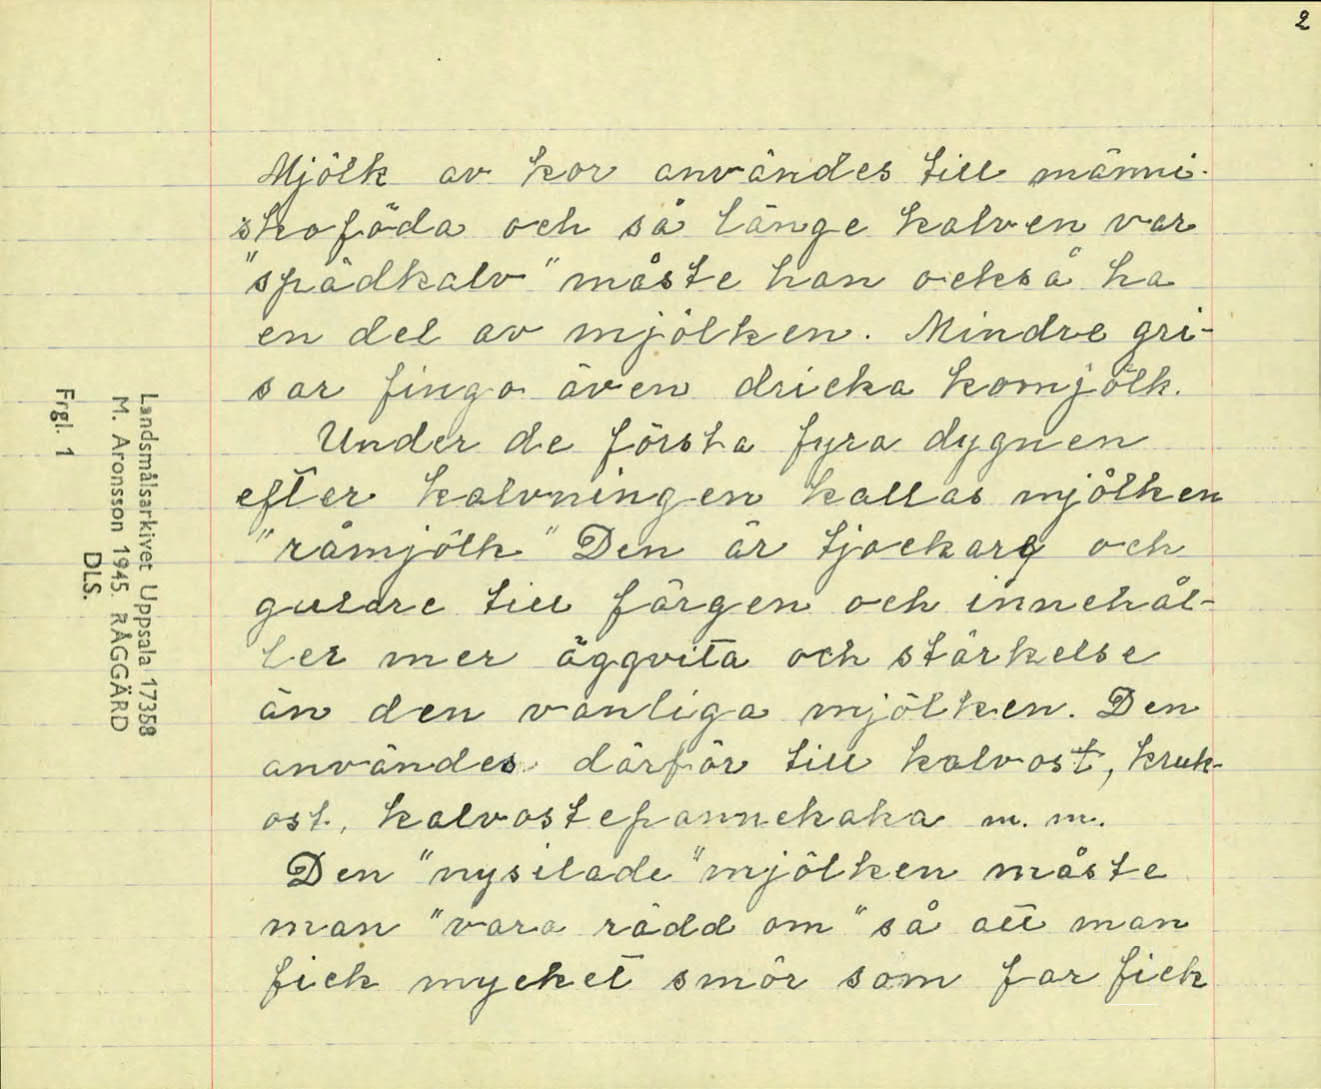 2
Mjölk av kor användes till männi-
skoföda och så länge kalven var
"spädkalv" måste han också ha
en del av mjölken. Mindre gri-
sar fingo även dricka komjölk.
Under de första fyra dygnen
efter kalvningen kallas mjölken
"råmjölk" Den är tjockare och
gulare till färgen och innehål-
ler mer äggvita och stärkelse
än den vanliga mjölken. Den
användes därför till kalvost, kruk-
ost, kalvostepannekaka m. m.
Den "nysilade" mjölken måste
man "vara rädd om" så att man
fick mycket smör som far fick
Landsmålsarkivet Uppsala 17358
M. Aronsson 1945. RÅGGÄRD
DLS.
Frgl. 1